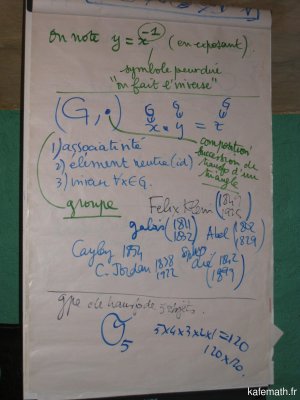 on note y = x⁻¹ (en exposant).
symbole pour dire
"on fait l'inverse"
(G, •)
G G G
x • y = z
composition
succession de
transfo d'un
triangle
1) associativité
2) élément neutre (id)
3) inverse ∀x∈G.
groupe
Felix Klein (1849
1925
galois (1811
1832) Abel (1802
1829)
Cayley 1854
C. Jordan 1838
1922
Lie (1842
1899)
gpe de transfo de 5 objets.
5
5x4x3x2x1 = 120
120 x 120.
kafemath.fr